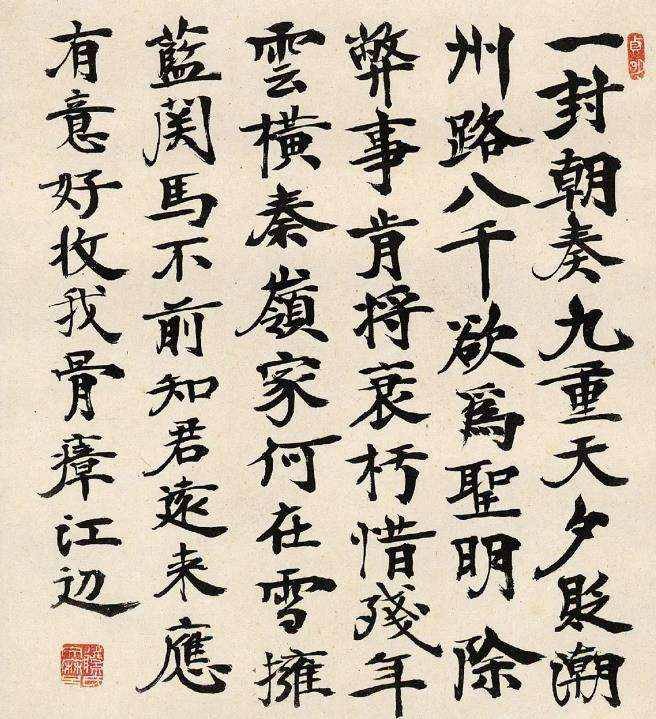 一封朝奏九重天夕貶潮
州路八千欲爲聖明除
弊事肯将衰朽惜殘年
雲橫秦嶺家何在雪擁
藍関馬不前知君遠来應
有意好收我骨瘴江辺